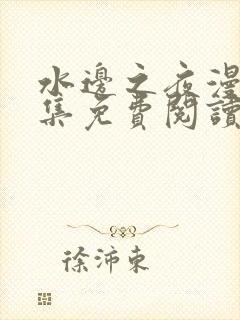 水邊之夜漫
集免費閱讀
徐沛東